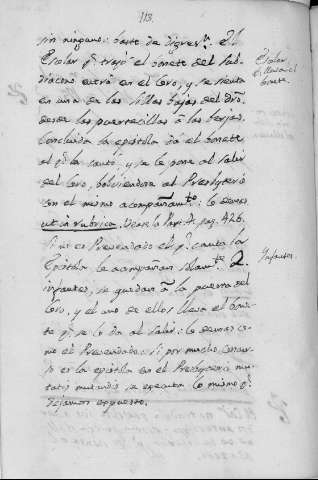 113.
sin ninguno: baste de digres.n El
Colar q.e trajo el bonete del Sub-
diacono entra en el Coro, y se sienta
en una de las sillas bajas del dro.
desde las puertecillas à las berjas.
Concluida la epistola da el bonete
al q.e la cantó, y se le pone al salir
del Coro, bolviendose al Presbyterio
con el mismo acompañam.to: lo demas
ut in rubrica. Vease la Part. 2.a pag. 426.
Si no es Prevendado el q.e canta la
Epistola le acompañan solam.te 2
infantes, se quedan à la puerta del
Coro, y el uno de ellos lleva el bone-
te q.e se lo da al salir: lo demas co-
mo el Prevendado: si por mucho concur-
so es la epistola en el Presbyterio mu-
tatis mutandis, se executa lo mismo q.e
dejamos expuesto.
Colar
q.e lleva el
bonete.
Infantes.